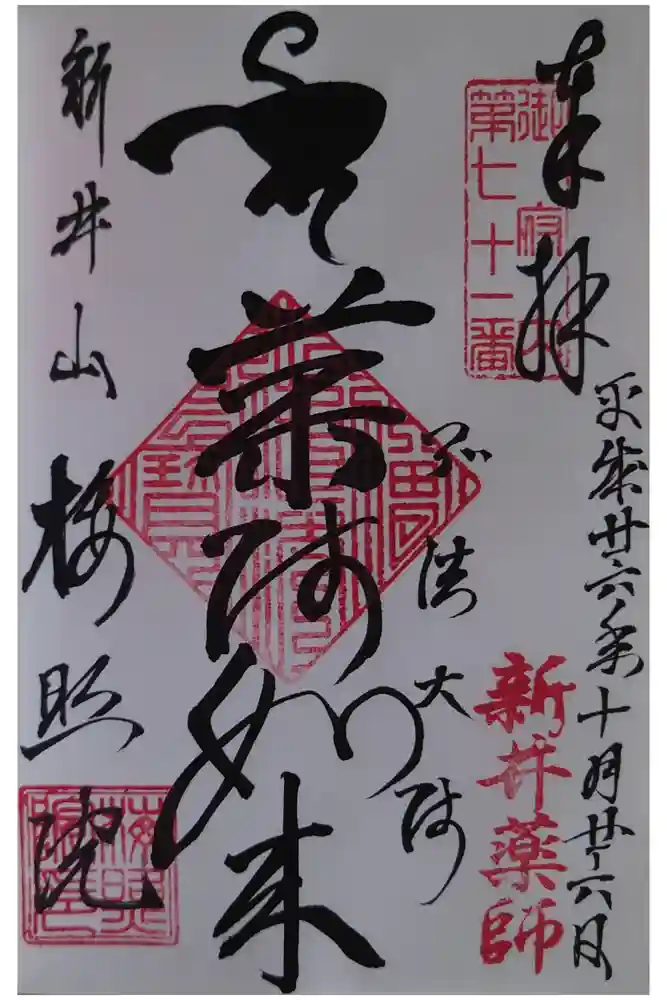 奉拝
御府内
第七十一番
平成廿六年十月廿六日
新井薬師
弘法大師
薬師如来
新井山
梅照院